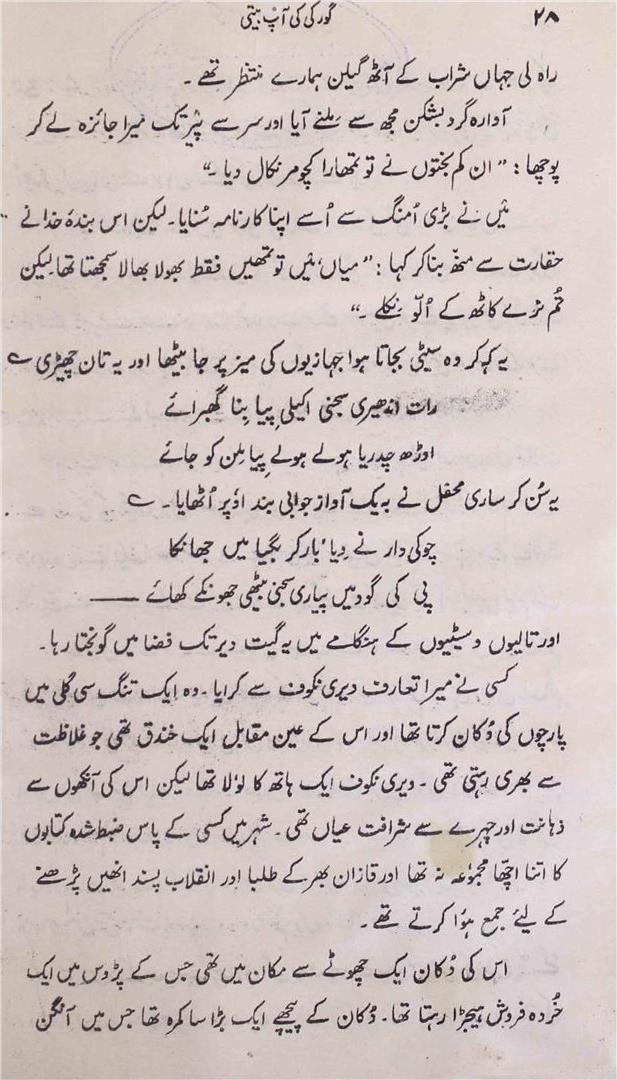 ۲۸
گورکی کی آپ بیتی
راہ لی جہاں شراب کے آٹھ گیلن ہمارے منتظر تھے ۔
آوارہ گرد بشکن مجھ سے مِلنے آیا اور سر سے پَیر تک میرا جائزہ لے کر
پوچھا : " ان کم بختوں نے تو تمھارا کچومر نکال دیا ۔"
مَیں نے بڑی اُمنگ سے اُسے اپنا کارنامہ سُنایا ۔ لیکن اس بندۂ خدا نے
حقارت سے منھ بنا کر کہا : " میاں، مَیں تو تمھیں فقط بھولا بھالا سمجھتا تھا لیکن
تُم نرے کاٹھ کے اُلّو نِکلے ۔"
یہ کہہ کر وہ سیٹی بجاتا ہوا جہازیوں کی میز پر جا بیٹھا اور یہ تان چھیڑی ؎
رات اندھیری سجنی اکیلی پِیا بِنا گھبرائے
اوڑھ چدریا ہولے ہولے پِیا مِلن کو جائے
یہ سُن کر ساری محفل نے بہ یک آواز جوابی بند اوٗپر اُٹھایا ۔ ؎
چوکی دار نے دِیا بار کر بگیا میں جھانکا
پی کی گود میں پیاری سجنی بیٹھی جھونکے کھائے ——
اور تالیوں و سیٹیوں کے ہنگامے میں یہ گیت دیر تک فضا میں گونجتا رہا ۔
کسی نے میرا تعارف دیری نکوف سے کرایا ۔ وہ ایک تنگ سی گلی میں
پارچوں کی دُکان کرتا تھا اور اس کے عین مقابل ایک خندق تھی جو غلاظت
سے بھری رہتی تھی ۔ دیری نکوف ایک ہاتھ کا لوٗلا تھا لیکن اس کی آنکھوں سے
ذہانت اور چہرے سے شرافت عیاں تھی ۔ شہر میں کسی کے پاس ضبط شدہ کتابوں
کا اتنا اچھّا مجموعہ نہ تھا اور قازان بھر کے طلبا اور انقلاب پسند انھیں پڑھنے
کے لیے جمع ہوُا کرتے تھے ۔
اس کی دُکان ایک چھوٹے سے مکان میں تھی جس کے پڑوس میں ایک
خُردہ فروش ہیجڑا رہتا تھا ۔ دُکان کے پیچھے ایک بڑا سا کمرہ تھا جس میں آنگن